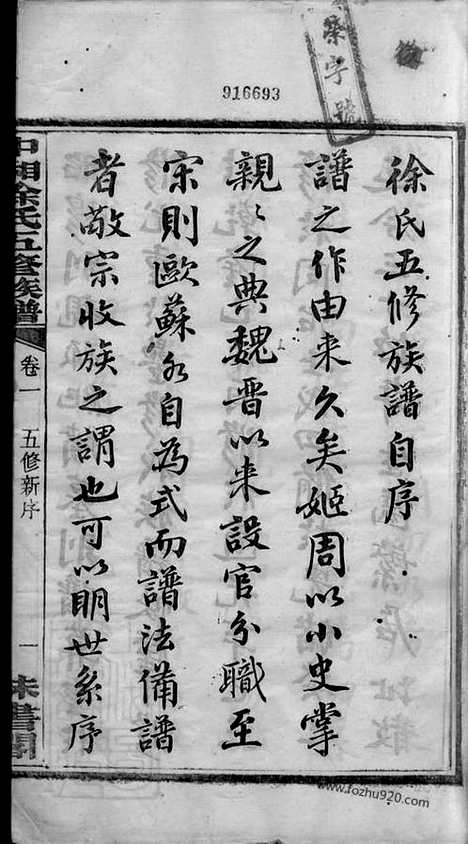 916693
桼字號
徐氏五修族譜自序
譜之作由来久矣姬周以小史掌
親〻之典魏晋以来設官分職至
宋則歐蘇各自為式而譜法備譜
者敬宗收族之謂也可以明世系序
中湘徐氏五修族譜
卷一
五修新序
一
www.fozhu920.com